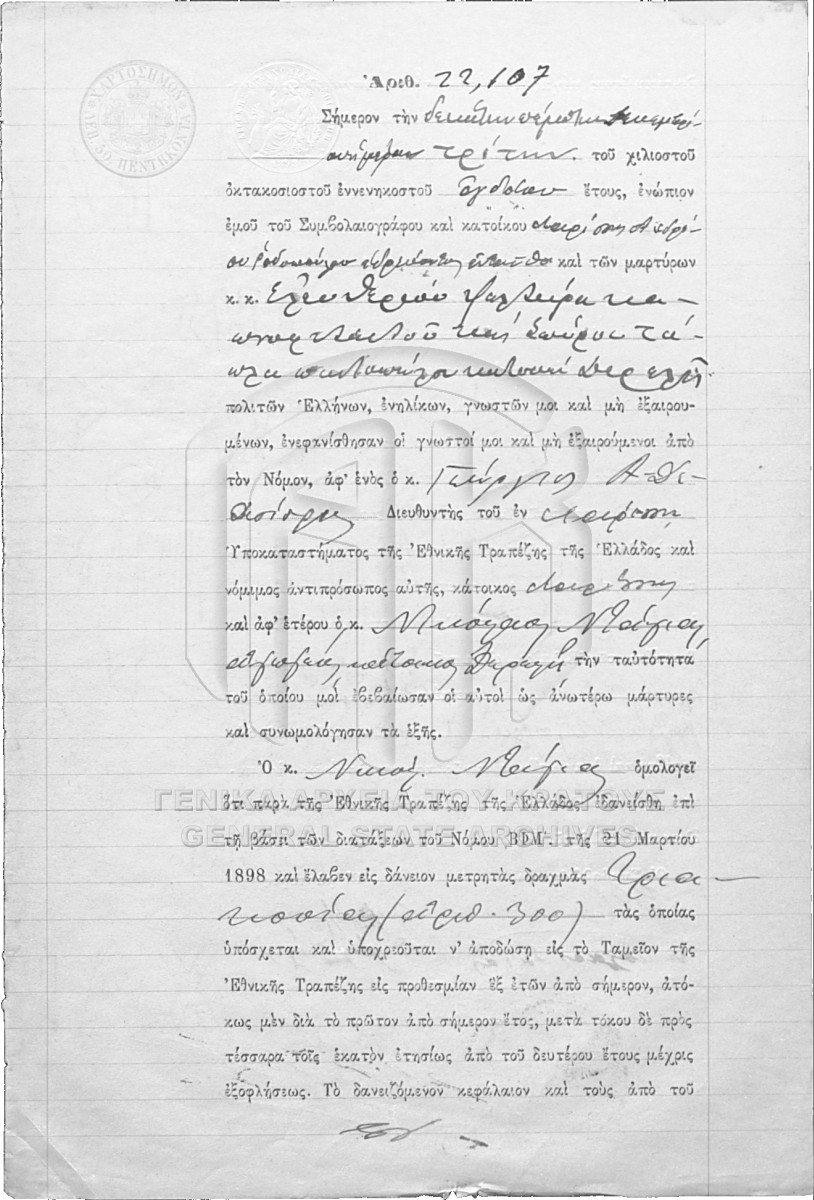 ΧΑΡΤΟΣΗΜΟΝ
ΛΕΠ. 50 ΠΕΝΤΗΚΟΝΤΑ
Ἀριθ. 22,107
Σήμερον τὴν δεκάτην πέμπτην Δεκεμβρί-
ου ἡμέραν τρίτην τοῦ χιλιοστοῦ
ὀκτακοσιοστοῦ ἐννενηκοστοῦ ὀγδόου ἔτους, ἐνώπιον
ἐμοῦ τοῦ Συμβολαιογράφου καὶ κατοίκου Λαρίσσης Ἀνδρέ-
ου Ῥοδοπούλου ἑδρεύοντος ἐνταῦθα καὶ τῶν μαρτύρων
κ. κ. Ἐλευθερίου κα-
πνεργοστασι καὶ Σπύρου
παντοπώλου κατοίκων
πολιτῶν Ἑλλήνων, ἐνηλίκων, γνωστῶν μοι καὶ μὴ ἐξαιρου-
μένων, ἐνεφανίσθησαν οἱ γνωστοί μοι καὶ μὴ ἐξαιρούμενοι ἀπὸ
τὸν Νόμον, ἀφ' ἑνὸς ὁ κ. Γεώργιος Ἀ.
Διευθυντὴς τοῦ ἐν Λαρίσσῃ
Ὑποκαταστήματος τῆς Ἐθνικῆς Τραπέζης τῆς Ἑλλάδος καὶ
νόμιμος ἀντιπρόσωπος αὐτῆς, κάτοικος Λαρίσσης
καὶ ἀφ' ἑτέρου ὁ κ. Νικόλαος
κάτοικος τὴν ταυτότητα
τοῦ ὁποίου μοὶ ἐβεβαίωσαν οἱ αὐτοὶ ὡς ἀνωτέρω μάρτυρες
καὶ συνωμολόγησαν τὰ ἑξῆς.
Ὁ κ. Νικόλ. ὁμολογεῖ
ὅτι παρὰ τῆς Ἐθνικῆς Τραπέζης τῆς Ἑλλάδος ἐδανείσθη ἐπὶ
τῇ βάσει τῶν διατάξεων τοῦ Νόμου ΒΦΜ′. τῆς 21 Μαρτίου
1898 καὶ ἔλαβεν εἰς δάνειον μετρητὰς δραχμὰς τρια-
κοσίας (ἀριθ. 300) τὰς ὁποίας
ὑπόσχεται καὶ ὑποχρεοῦται ν' ἀποδώσῃ εἰς τὸ Ταμεῖον τῆς
Ἐθνικῆς Τραπέζης εἰς προθεσμίαν ἓξ ἐτῶν ἀπὸ σήμερον, ἀτό-
κως μὲν διὰ τὸ πρῶτον ἀπὸ σήμερον ἔτος, μετὰ τόκου δὲ πρὸς
τέσσαρα τοῖς ἑκατὸν ἐτησίως ἀπὸ τοῦ δευτέρου ἔτους μέχρις
ἐξοφλήσεως. Τὸ δανειζόμενον κεφάλαιον καὶ τοὺς ἀπὸ τοῦ
ΓΕΝΙΚΑ ΑΡΧΕΙΑ ΤΟΥ ΚΡΑΤΟΥΣ
GENERAL STATE ARCHIVES